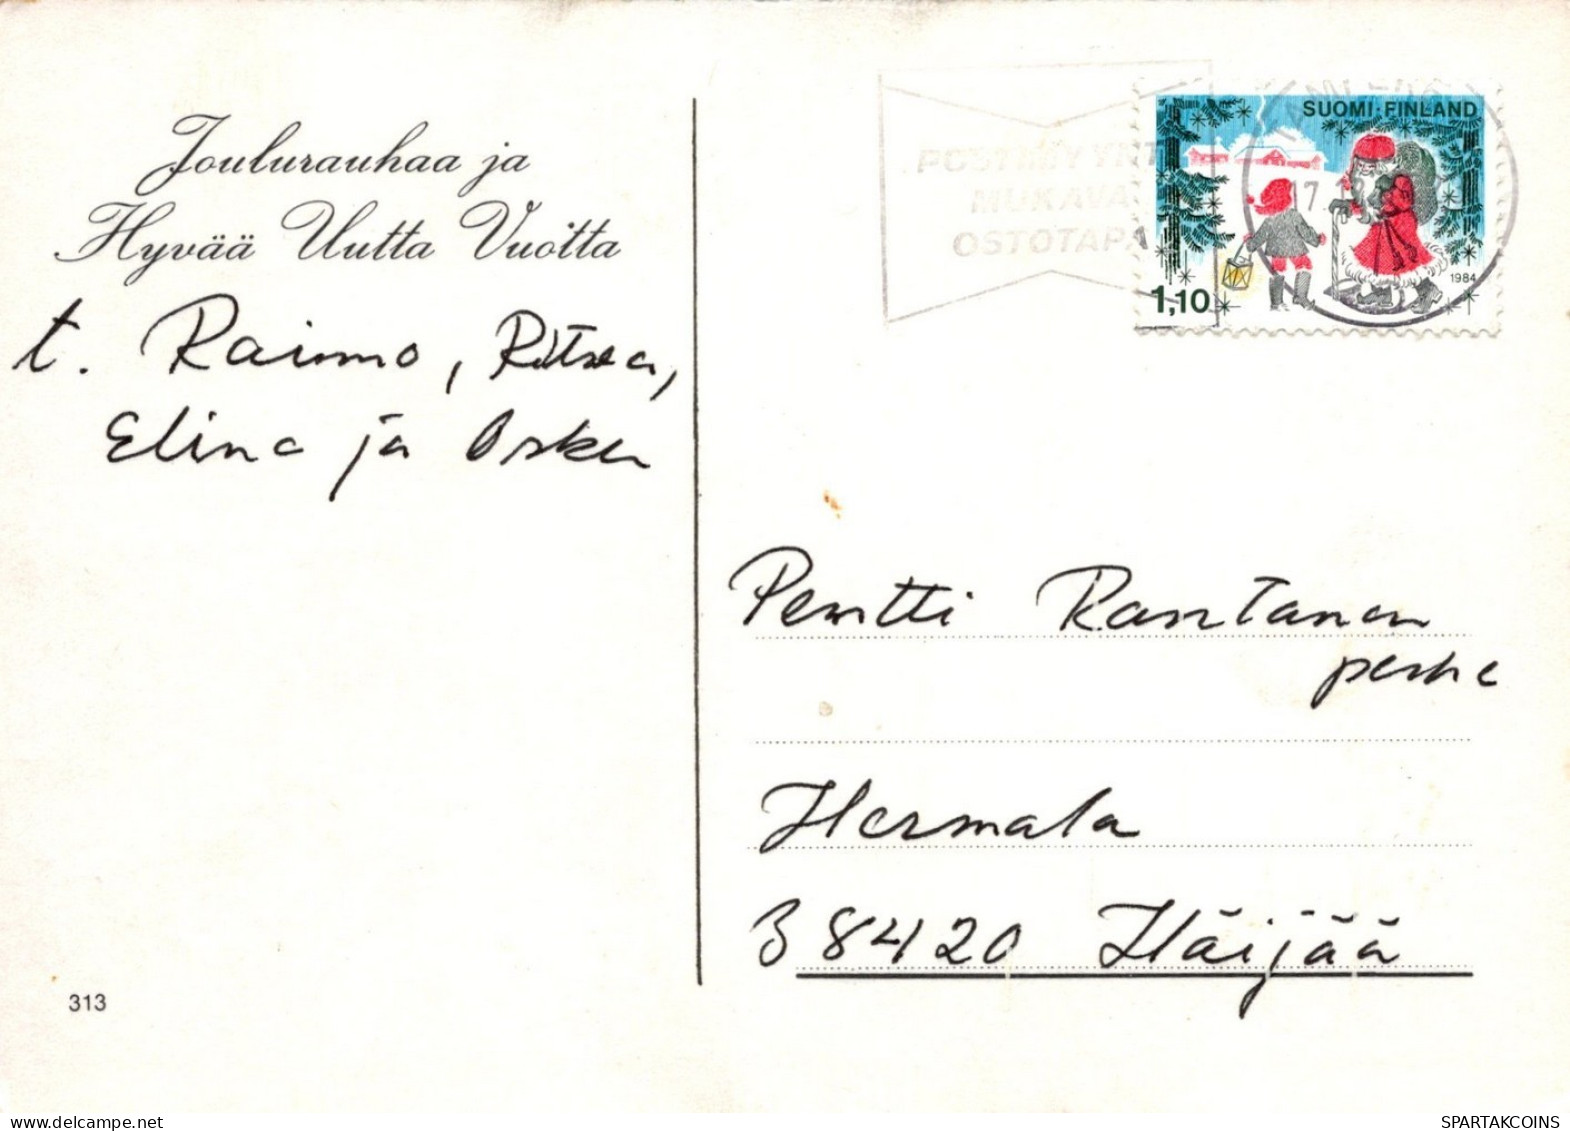 Joulurauhaa ja
Hyvää Uutta Vuotta
t. Raimo, Ritva,
Elina ja Osku
313
POSTIMYYNTI
MUKAVA
OSTOTAPA
SUOMI·FINLAND
17.12
1984
1,10
Pentti Rantanen
perhe
Hermala
38420 Häijää
SPARTAKCOINS